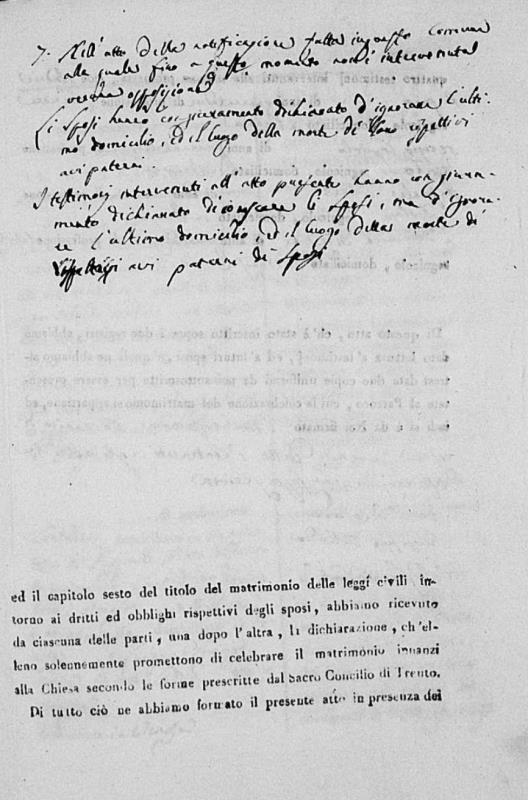 7. Nell'atto della notificazione fatta in questo Comune
alla quale fino a questo momento non è intervenuta
veruna opposizione
Li Sposi hanno con giuramento dichiarato d'ignorare l'ulti
mo domicilio, ed il luogo della morte di loro rispettivi
avi paterni.
I testimonj intervenuti all'atto presente hanno con giura-
mento dichiarato di conoscere li sposi, ma d'ignora-
re l'ultimo domicilio, ed il luogo della morte di
avi paterni di Sposi
ed il capitolo sesto del titolo del matrimonio delle leggi civili in-
torno ai dritti ed obblighi rispettivi degli sposi, abbiamo ricevuto
da ciascuna delle parti, una dopo l'altra, la dichiarazione, ch'el-
leno solennemente promettono di celebrare il matrimonio innanzi
alla Chiesa secondo le forme prescritte dal Sacro Concilio di Trento.
Di tutto ciò ne abbiamo formato il presente atto in presenza dei